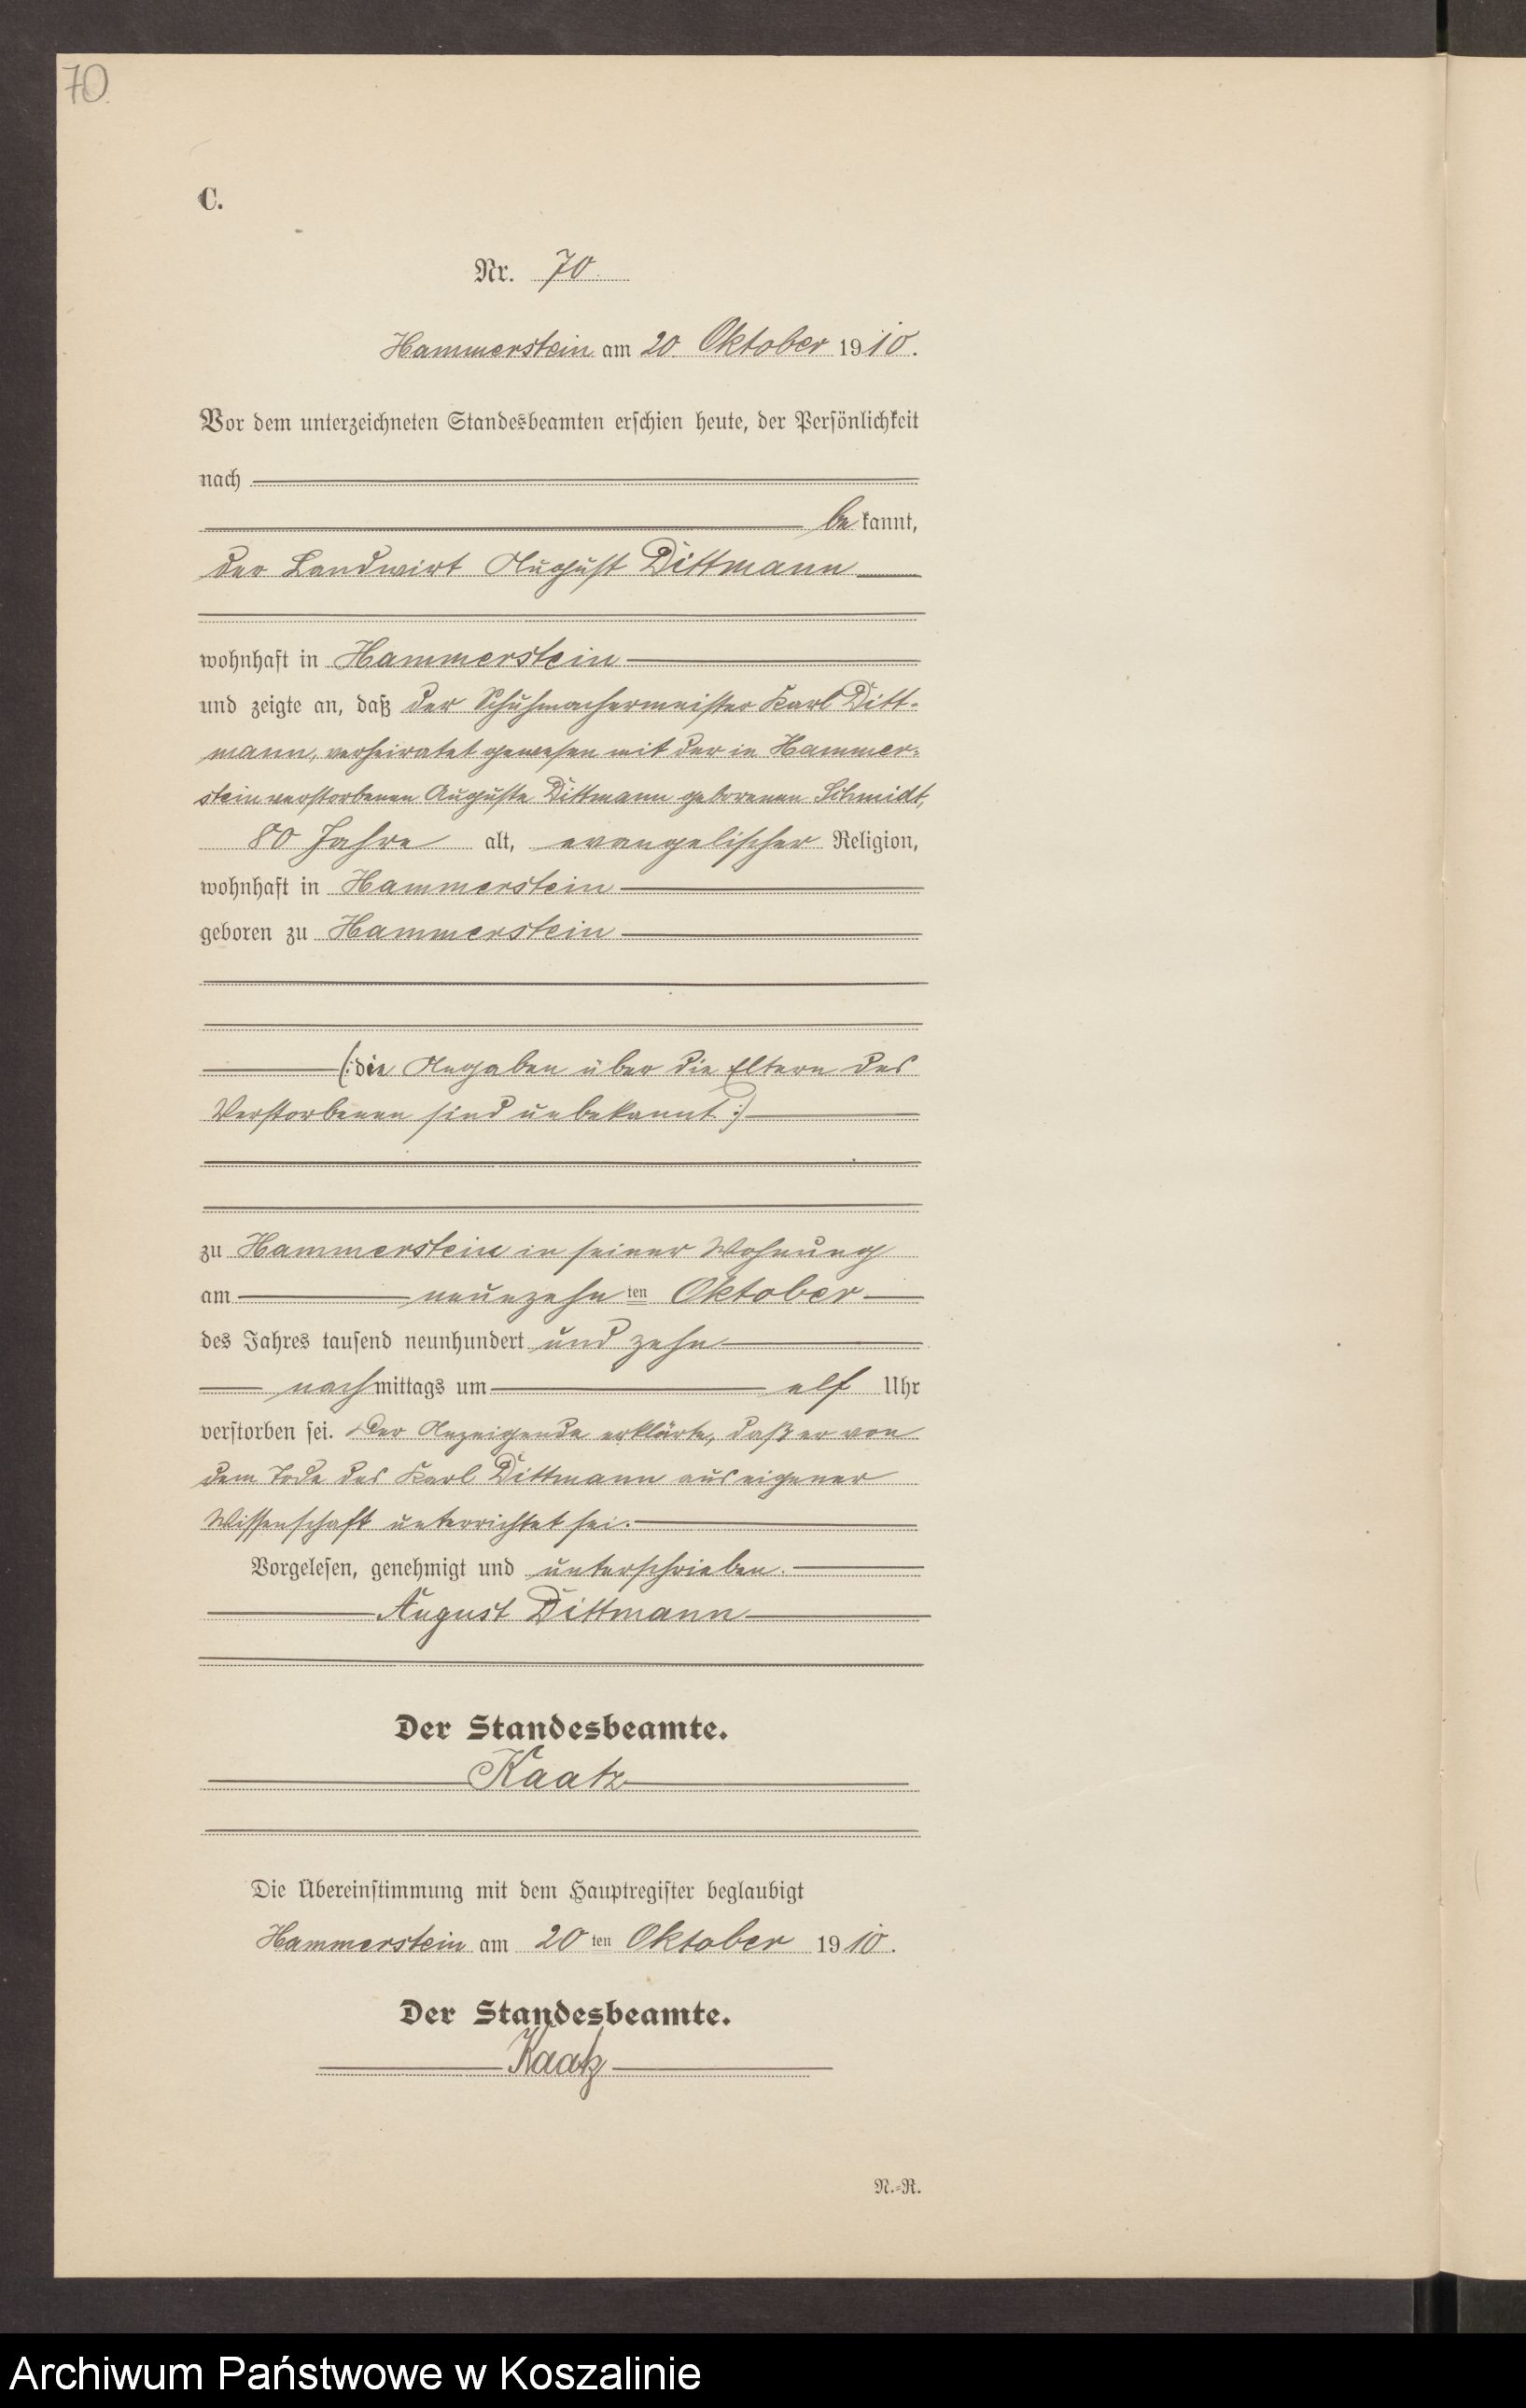 70.
C.
Nr. 70.
Hammerstein am 20. Oktober 1910.
Vor dem unterzeichneten Standesbeamten erschien heute, der Persönlichkeit
nach
be kannt,
der Landwirt August Dittmann
wohnhaft in Hammerstein
und zeigte an, daß der Schuhmachermeister Karl Ditt-
mann, verheiratet gewesen mit der in Hammer-
stein verstorbenen Auguste Dittmann geborenen Schmidt,
80 Jahre alt, evangelischer Religion,
wohnhaft in Hammerstein
geboren zu Hammerstein
(: die Angaben über die Eltern des
Verstorbenen sind unbekannt :)
zu Hammerstein in seiner Wohnung
am neunzehn ten Oktober
des Jahres tausend neunhundert und zehn
nachmittags um elf Uhr
verstorben sei. Der Anzeigende erklärte, daß er von
dem Tode des Karl Dittmann aus eigener
Wissenschaft unterrichtet sei.
Vorgelesen, genehmigt und unterschrieben.
August Dittmann
Der Standesbeamte.
Kaatz
Die Übereinstimmung mit dem Hauptregister beglaubigt
Hammerstein am 20 ten Oktober 1910.
Der Standesbeamte.
Kaatz
N.=R.
Archiwum Państwowe w Koszalinie